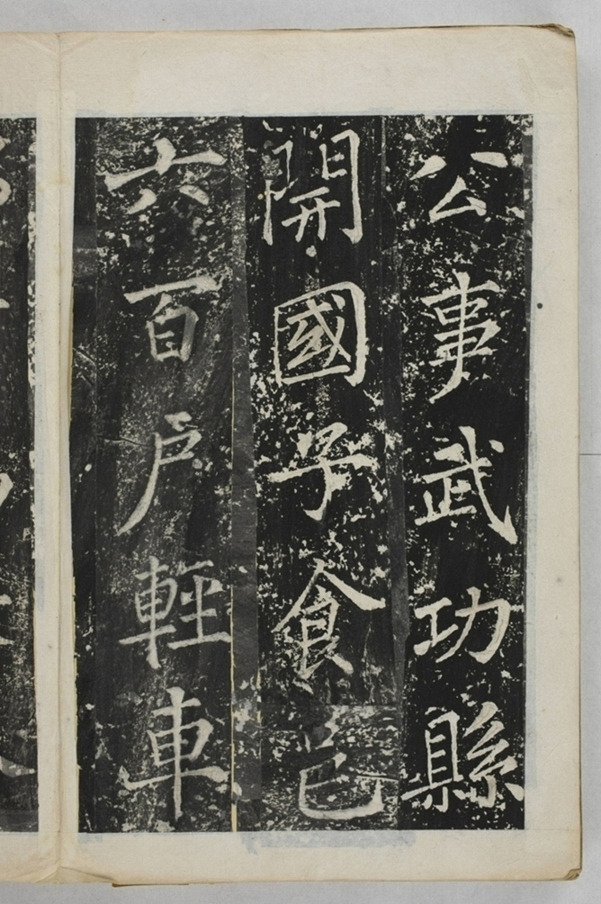 公事武功縣
開國子食邑
六百戶輕車